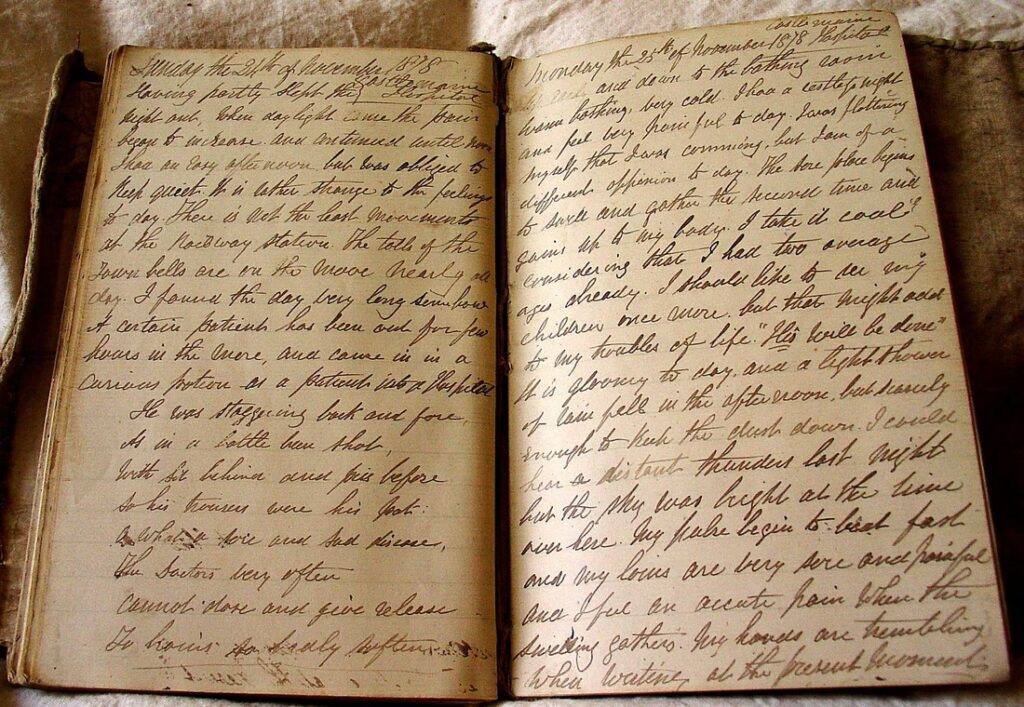 Sunday the 24th of November 1878
Castlemaine
Having partly Slept the Hospital
night out, when daylight came the pain
began to increase and continued until noon
I had an Easy afternoon but was obliged to
Keep queet. It is rather strange to the feelings
to day. There is not the least movements
at the Railway station. The tolls of the
Town bells are on the move nearly all
day. I found the day very long somehow
A certain patient has been out for few
hours in the more, and came in in a
curious potion as a patient into a Hospital
He was staggering back and fore,
As in a battle been shot,
With Sir behind and pis before
So his trousers were his Pot:
O what a sore and sad disease,
The Doctors very often
Cannot dose and give release
To brains so badly soften
Castlemaine
Monday the 25th of November 1878 Hospital
and down to the bathing room
warm bathing, very cold. I had a restless night
and feel very painful to day. I was flattering
myself that I was comming, but I am of a
different oppenion to day. The sore place begins
to swell and gather the second time and
pains up to my body. I take it cool
considering that I had two average
ages already. I should like to see my
children once more, but that might add
to my troubles of life. "His will be done"
It is gloomy to day, and a light shower
of rain fell in the afternoon, but scarcely
enough to Keep the dust down. I could
hear a distant thunders last night
but the sky was bright at the time
over here. My pulse begin to beat fast
and my loins are very sore and painful
and I feel an accute pain when the
swelling gathers. My hands are trembling
when writing at the present moment